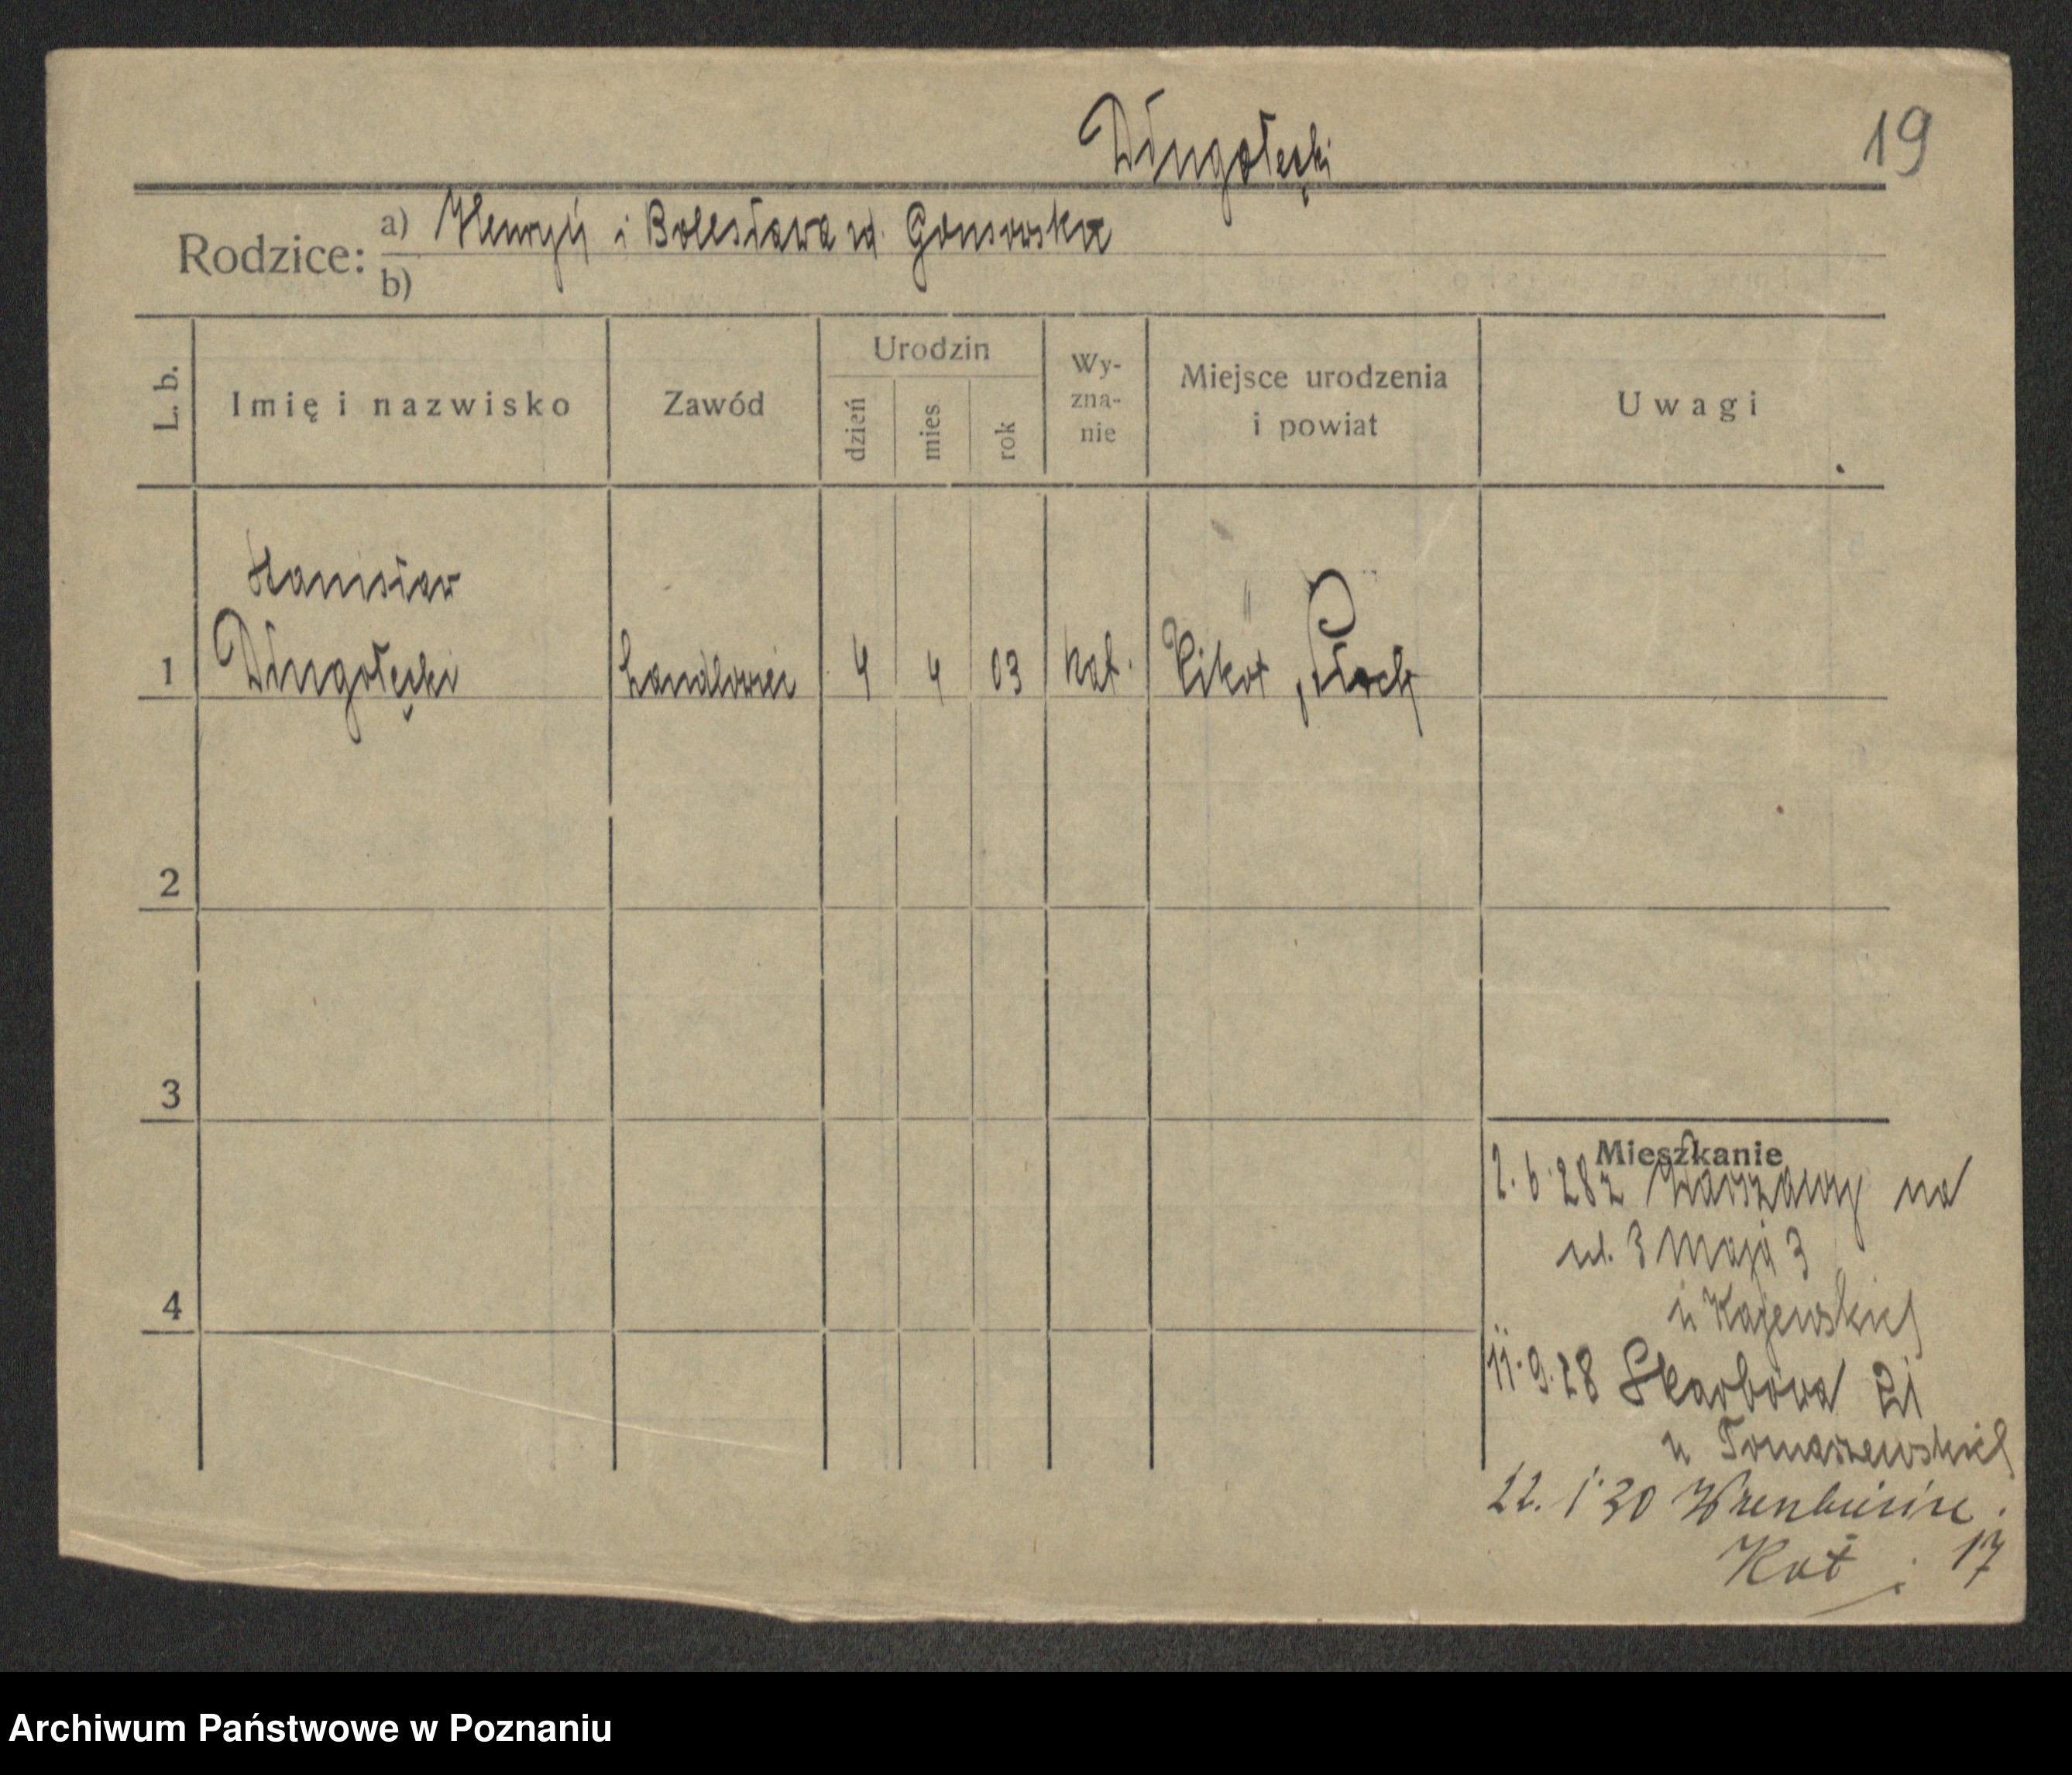 Długołęcki
19
Rodzice: a) Henryk i Bolesława zd. Gonsowska
b)
L. b.
Imię i nazwisko
Zawód
Urodzin
dzień
mies
rok
Wy-
zna-
nie
Miejsce urodzenia
i powiat
Uwagi
Stanisław
1 Długołęcki handlowiec 4 4 03 kat. Kikół, Płock
2
3
4
Mieszkanie
2.6.28 z Warszawy na
ul. 3 Maja 3
u Kajewskiej
11.9.28 Skarbowa 21
u Tomaszewskiej
22.1.30
17
Archiwum Państwowe w Poznaniu